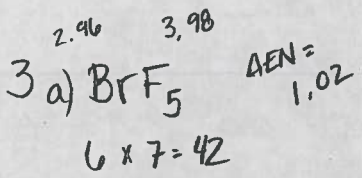 2.96 3.98
3 a) BrF5 ΔEN =
1.02
6 x 7 = 42